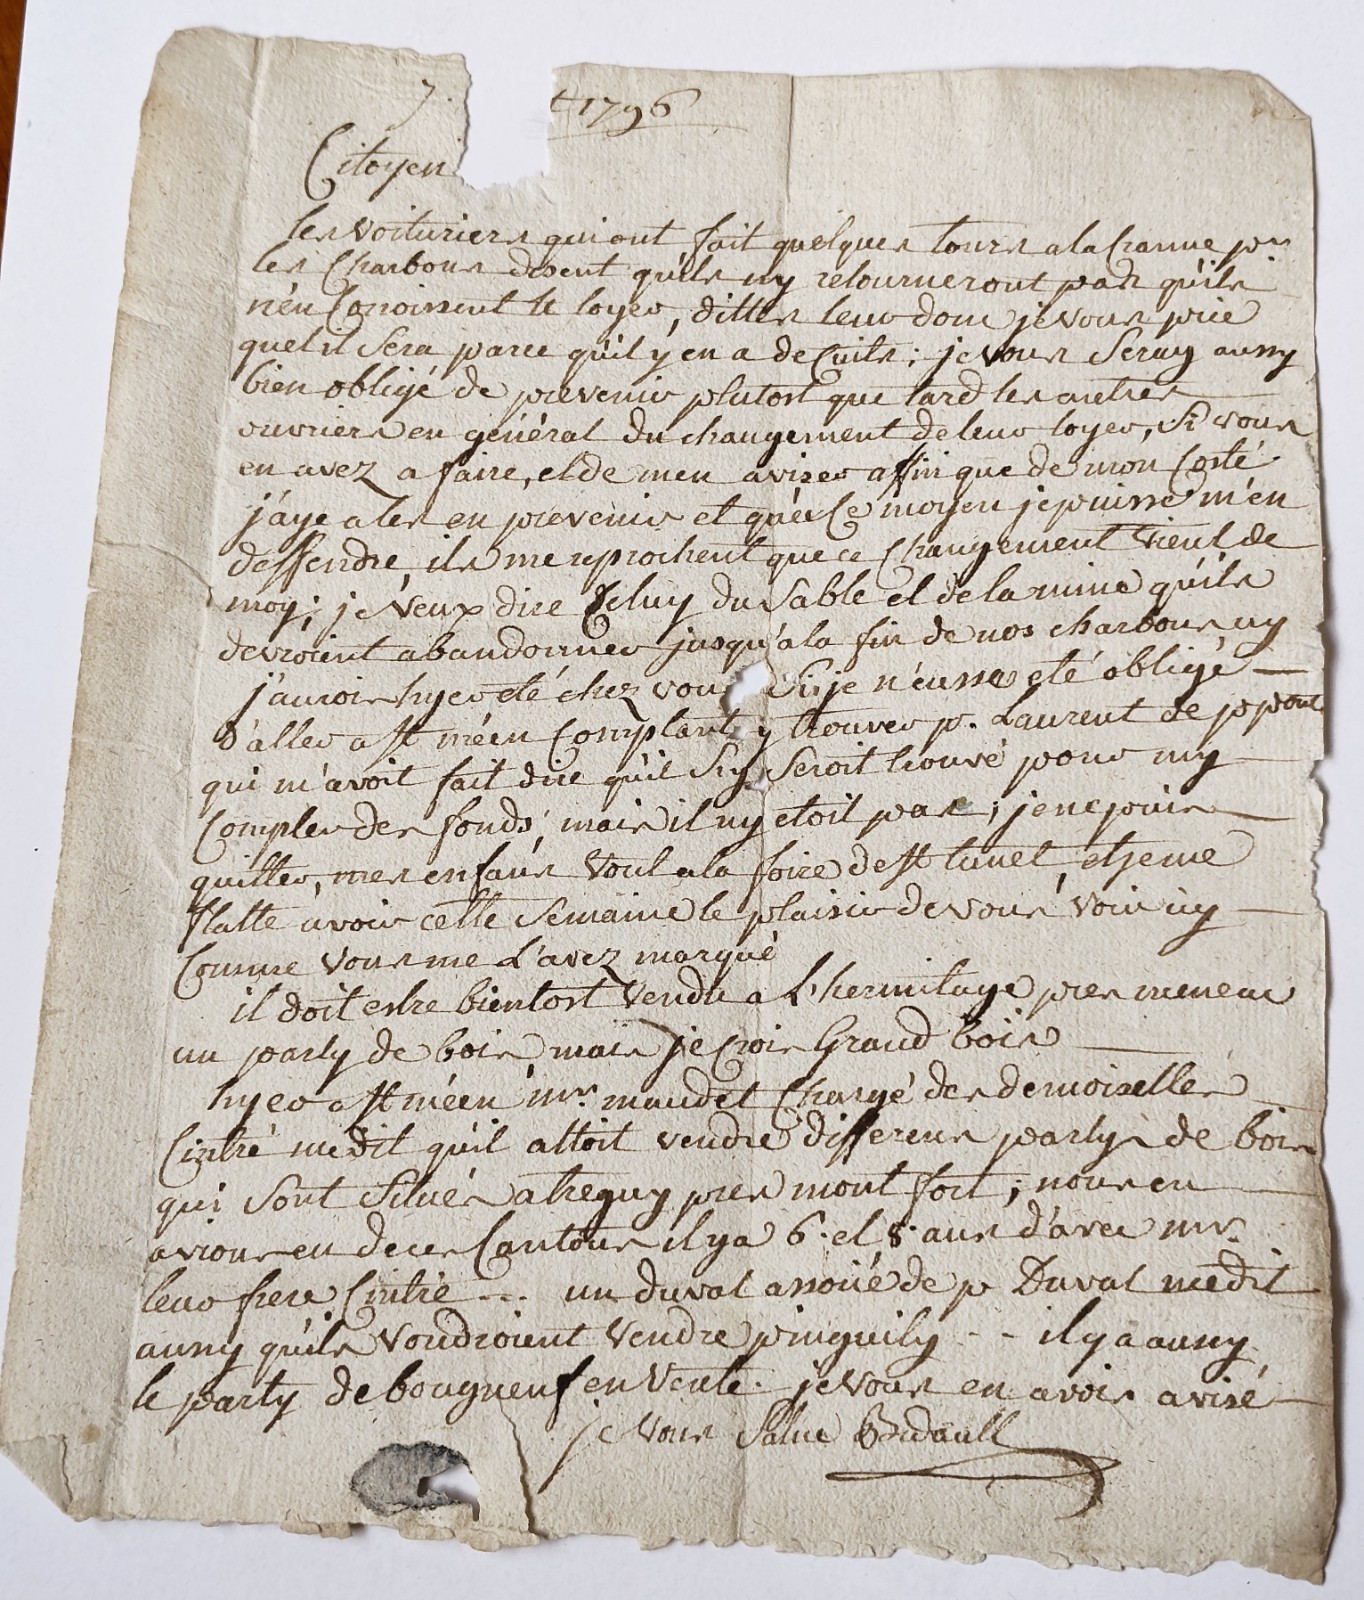 7. t 1796
Citoyen
les voituriers qui ont fait quelques tours a la pr
les charbons disent qu'ils n'y retourneront pas qu'ils
n'en Conoissent le loyer, dittes leur donc je vous prie
quel il Sera parce qu'il y en a de Cuits; je vous Seray aussy
bien obligé de prevenir plutost que tard les autres
ouvriers en général du changement de leur loyer, Si vous
en avez a faire, et de m'en aviser affin que de mon Costé
j'aye a les en prevenir et qu'ar Ce moyen je puisse m'en
deffendre, ils me reprochent que ce changement vient de
moy; je veux dire Celuy du Sable et de la mine qu'ils
devroient abandonner jusqu'a la fin de nos charbons, ny
j'aurois hyer eté chez vous Si je n'eusse eté obligé
d'aller a St méen Comptant y trouver p. Laurent de
qui m'avoit fait dire qu'il s'y Seroit trouvé pour m'y
Compter des fonds, mais il n'y etoit pas; je ne puis
quitter, mes enfans vont a la foire de St et je me
flatte avoir cette Semaine le plaisir de vous voir icy
Comme vous me L'avez marqué
il doit estre bientost vendu a L'hermitage pres meneac
un party de bois mais je Crois Grand bois
hyer a St méen mr. maudet Chargé des demoiselles
Cintré me dit qu'il alloit vendre differens partys de bois
qui Sont Situés a treguy pres mont fort; nous en
avions eu de ces Cantons il y a 6. et 8. ans d'avec mr.
leur frere Cintré ... un duval assoié de p Duval me dit
aussy qu'ils voudroient vendre pinguily -- il y a aussy
le party de bougneuf en vente. je vous en avois avisé
je vous Salue